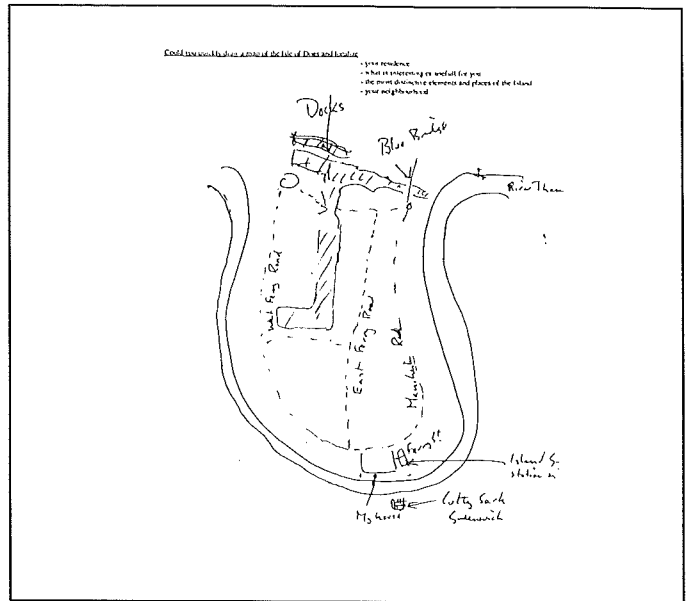 Could you quickly draw a map of the Isle of Dogs and localize
- your residence
- what is interesting or usefull for you
- the most distinctive elements and places of the Island
- your neighbourhood
Docks
Blue Bridge
River Tham
West Ferry Road
East Ferry Road
Manchester Rd
Ferry St
Island G.
station
My house
Cutty Sark
Greenwich